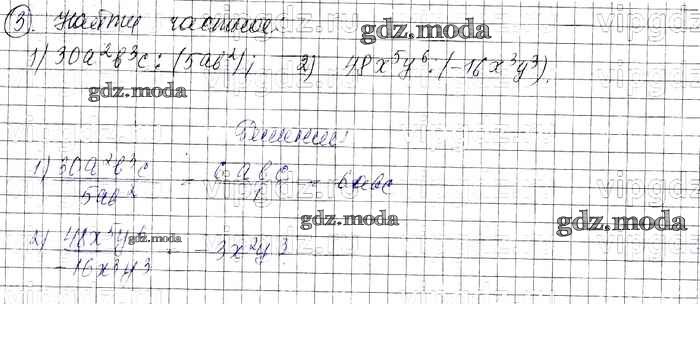 3. Найти частные:
gdz.moda
1) 30a²b³c : (5ab²); 2) 48x⁵y⁶ : (-16x³y³).
gdz.moda
Решение:
1) 30a²b³c / 5ab² = 6abc / 1 = 6abc
gdz.moda
gdz.moda
2) 48x⁵y⁶ / -16x³y³ = -3x²y³
gdz.moda